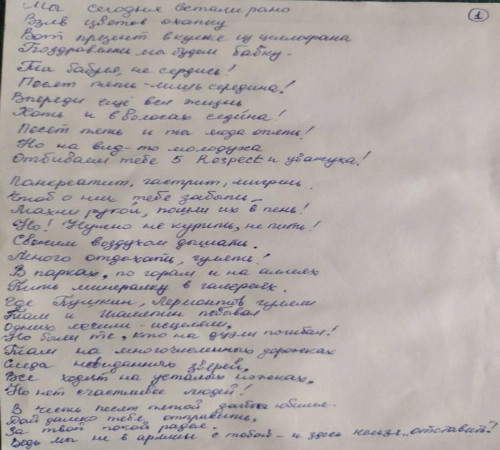 1
Мы сегодня встали рано
Взяв цветов охапку
Вот презент в кульке из целлофана
Поздравлять мы будем бабку.
Ты бабуля, не сердись!
Посят пять - лишь середина!
Впереди ещё вся жизнь
Хоть и в волосах седина!
Посят пять и ты мода опять!
Но на вид-то молодуха
Отбиваем тебе 5 Respect и уважуха!
Панкреатит, гастрит, мигрень.
Чтоб о них тебе забыть
Махни рукой, пошли их в пень!
Но! Нужно не курить, не пить!
Свежим воздухом дышать.
Много отдыхать, гулять!
В парках, по горам и на аллеях
Пить минералку в галереях.
Где Пушкин, Лермонтов гуляли
Там и Шаляпин побывал
Одних лечили - исцеляли,
Но были те, кто на дуэли погибал!
Там на многочисленных дорожках
Следы невиданных зверей,
Все ходят на усталых ножках,
Но нет счастливее людей!
В честь посят пятой даты юбилея
Дай далеко тебе отправить,
За твой покой радея.
Ведь мы не в армии с тобой - и здесь нельзя "отставить"!